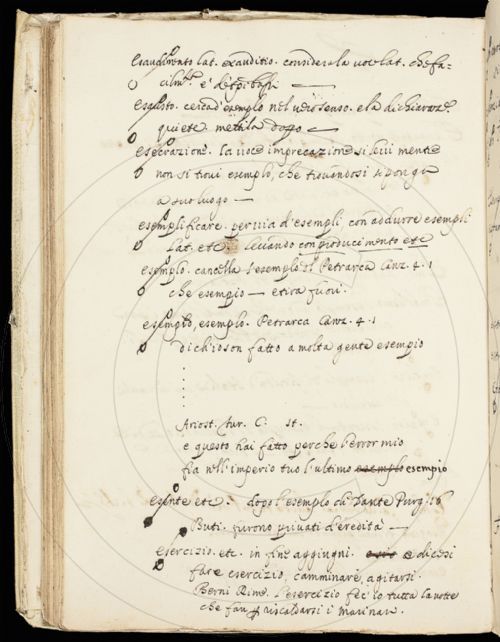 esaudimento lat. exauditio. considera la voce lat. che fa-
cilm.te è de tpi bassi —
esausto. cerca d'esempio nel v.o senso. e la dichiaraz.e
quiete mettila dopo —
esecrazione. la voce imprecazione si levi mentre
non si trovi esempio, che trovandosi si ponga
a suo luogo —
esemplificare. per via d'esempli, con addurre esempli
lat. etc. levando con producimento etc
esemplo. cancella l'esemplo di Petrarca Canz. 4. 1
che esempio — e tira fuori.
esemplo, esemplo. Petrarca Canz. 4. 1
di ch'io son fatto a molta gente esempio
Ariost. fur. C. st.
e questo hai fatto perche l'error mio
fia nell'imperio tuo l'ultimo esemplo esempio
esente etc. dopo l'esemplo di Dante Purg. 16
Buti. furono privati d'eredità —
esercizio. etc. in fine aggiugni. e dicesi
fare esercizio, camminare, agitarsi.
Berni Rime. l'esercizio fei io tutta la notte
che fan p riscaldarsi i marinari.